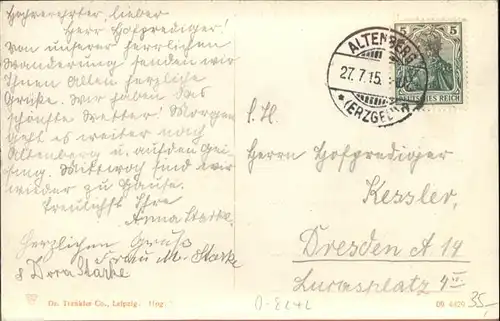 Hochverehrter, lieber
Herr Hofprediger!
Von unserer herrlichen
Wanderung senden wir
Ihnen Allen herzliche
Grüße. Wir haben das
schönste Wetter! Morgen
geht es weiter nach
Altenberg u. auf den Gei-
sing. Mittwoch sind wir
wieder zu Hause.
Treulichst Ihre
Anna Starke.
Herzlichen Gruß
Frau M. Starke
& Dora Starke
5 5
DEUTSCHES REICH
ALTENBERG
27.7.15.
* (ERZGEB.)
S. H.
Herrn Hofprediger
Kessler,
Dresden A 14
Lukasplatz 4 III.
Dr. Trenkler Co., Leipzig.
09 4429
35,-